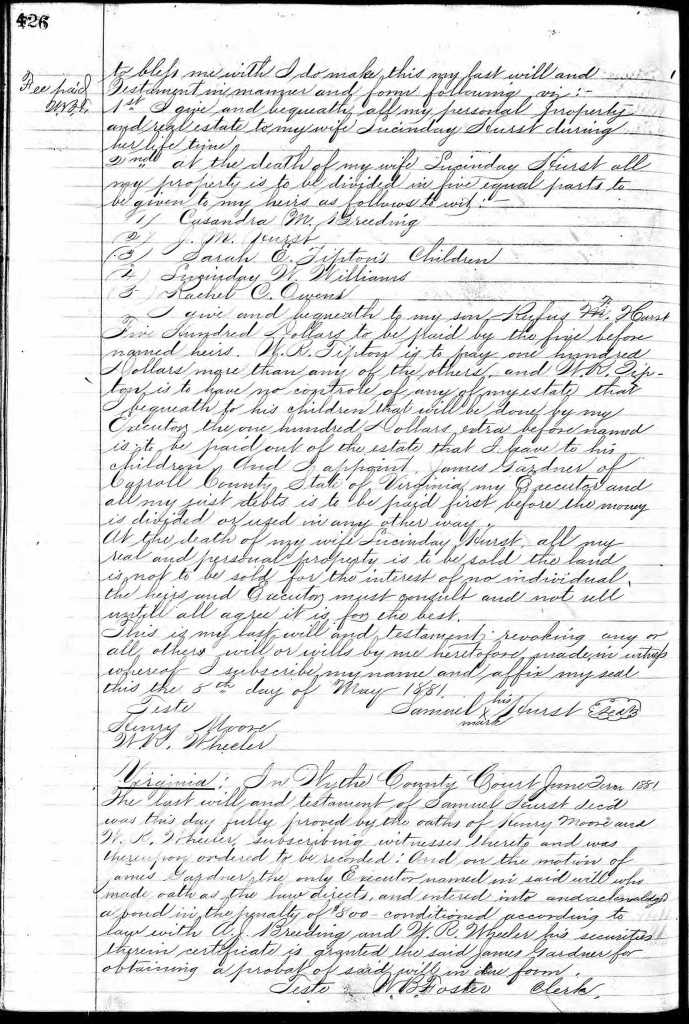 426
Fee paid
to bless me with I do make this my last will and
Testiment in manner and form following viz:-
1st I give and bequeath all my personal property
and real estate to my wife Lucinday Hurst during
her life time
2nd " at the death of my wife Lucinday Hurst all
my property is to be divided in five equal parts to
be given to my heirs as follows to wit:-
(1) Casandra M. Breeding
(2) J. M. Hurst
(3) Sarah E. Tipton's Children
(4) Lucinday W. Williams
(5) Rachel C. Owens
I give and bequeath to my son Rufus Hurst
Five Hundred Dollars to be paid by the five before
named heirs. W. R. Tipton is to pay one hundred
Dollars more than any of the others, and W. R. Tip-
ton is to have no controle of any of my estate that
I bequeath to his children that will be done by my
Executor, the one hundred Dollars extra before named
is to be paid out of the estate that I leave to his
children, And I appoint James Gardner of
Carroll County, State of Virginia my Executor and
all my just debts is to be paid first before the money
is divided or used in any other way.
At the death of my wife Lucinday Hurst, all my
real and personal property is to be sold the land
is not to be sold for the interest of no individual,
the heirs and Executor must consult and not sell
untill all agree it is for the best.
This is my last will and testament, revoking any or
all others will or wills by me heretofore made, in witness
whereof I subscribe my name and affix my seal
this the 5th day of May 1881.
Teste Samuel his x mark Hurst Seal
Henry Moore
W. R. Wheeler
Virginia: In Wythe County Court June Term 1881
The last will and testament of Samuel Hurst dec'd
was this day fully proved by the oaths of Henry Moore and
W. R. Wheeler, subscribing witnesses thereto and was
thereupon ordered to be recorded: And on the motion of
James Gardner, the only Executor named in said will who
made oath as the law directs, and intered into and acknowledgd
a bond in the penalty of $800- conditioned according to
law with A. J. Breeding and W. R. Wheeler his securities
therein certificate is granted the said James Gardner for
obtaining a probat of said will in due form.
Teste W. B. Foster Clerk.